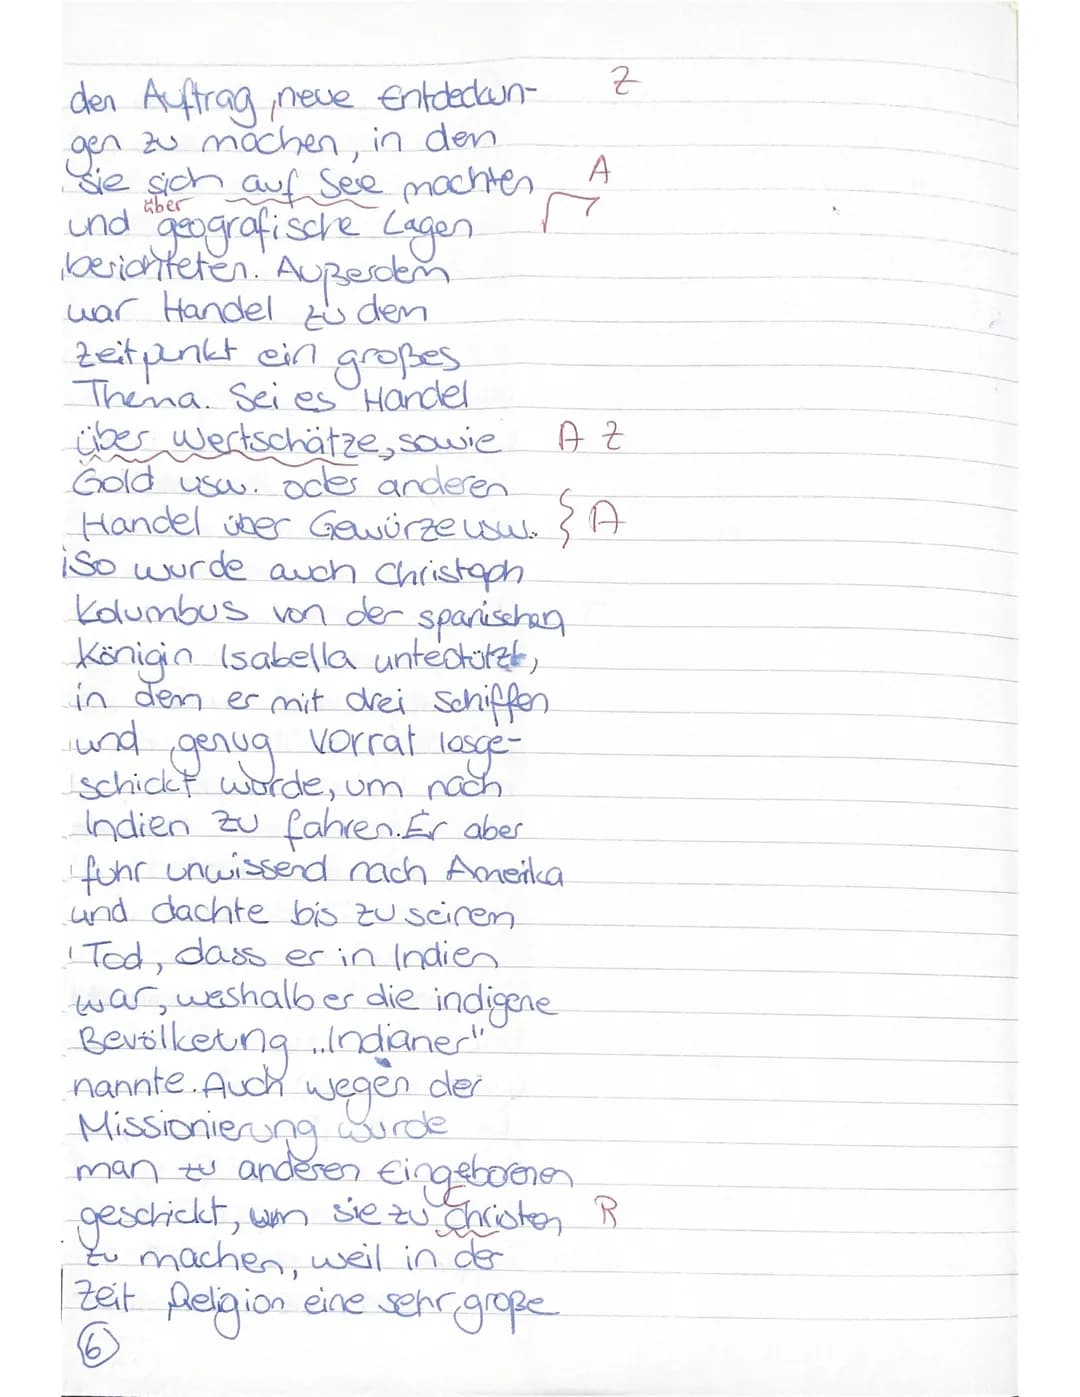 den Auftrag, neue Entdeckun- Z
gen zu machen, in den
sie sich auf See machten A
über
und geografische Lagen Γ7
berichteten. Außerdem
war Handel zu dem
Zeitpunkt ein großes
Thema. Sei es Handel
über Wertschätze, sowie A Z
Gold usw. oder anderen
Handel über Gewürze usw. } A
So wurde auch Christoph
Kolumbus von der spanischen
Königin Isabella untestützt,
in dem er mit drei Schiffen
und genug Vorrat losge-
schickt wurde, um nach
Indien zu fahren. Er aber
fuhr unwissend nach Amerika
und dachte bis zu seinem
Tod, dass er in Indien
war, weshalb er die indigene
Bevölkerung „Indianer"
nannte. Auch wegen der
Missionierung wurde
man zu anderen Eingeborenen
geschickt, um sie zu Christen R
zu machen, weil in der
Zeit Religion eine sehr große
6